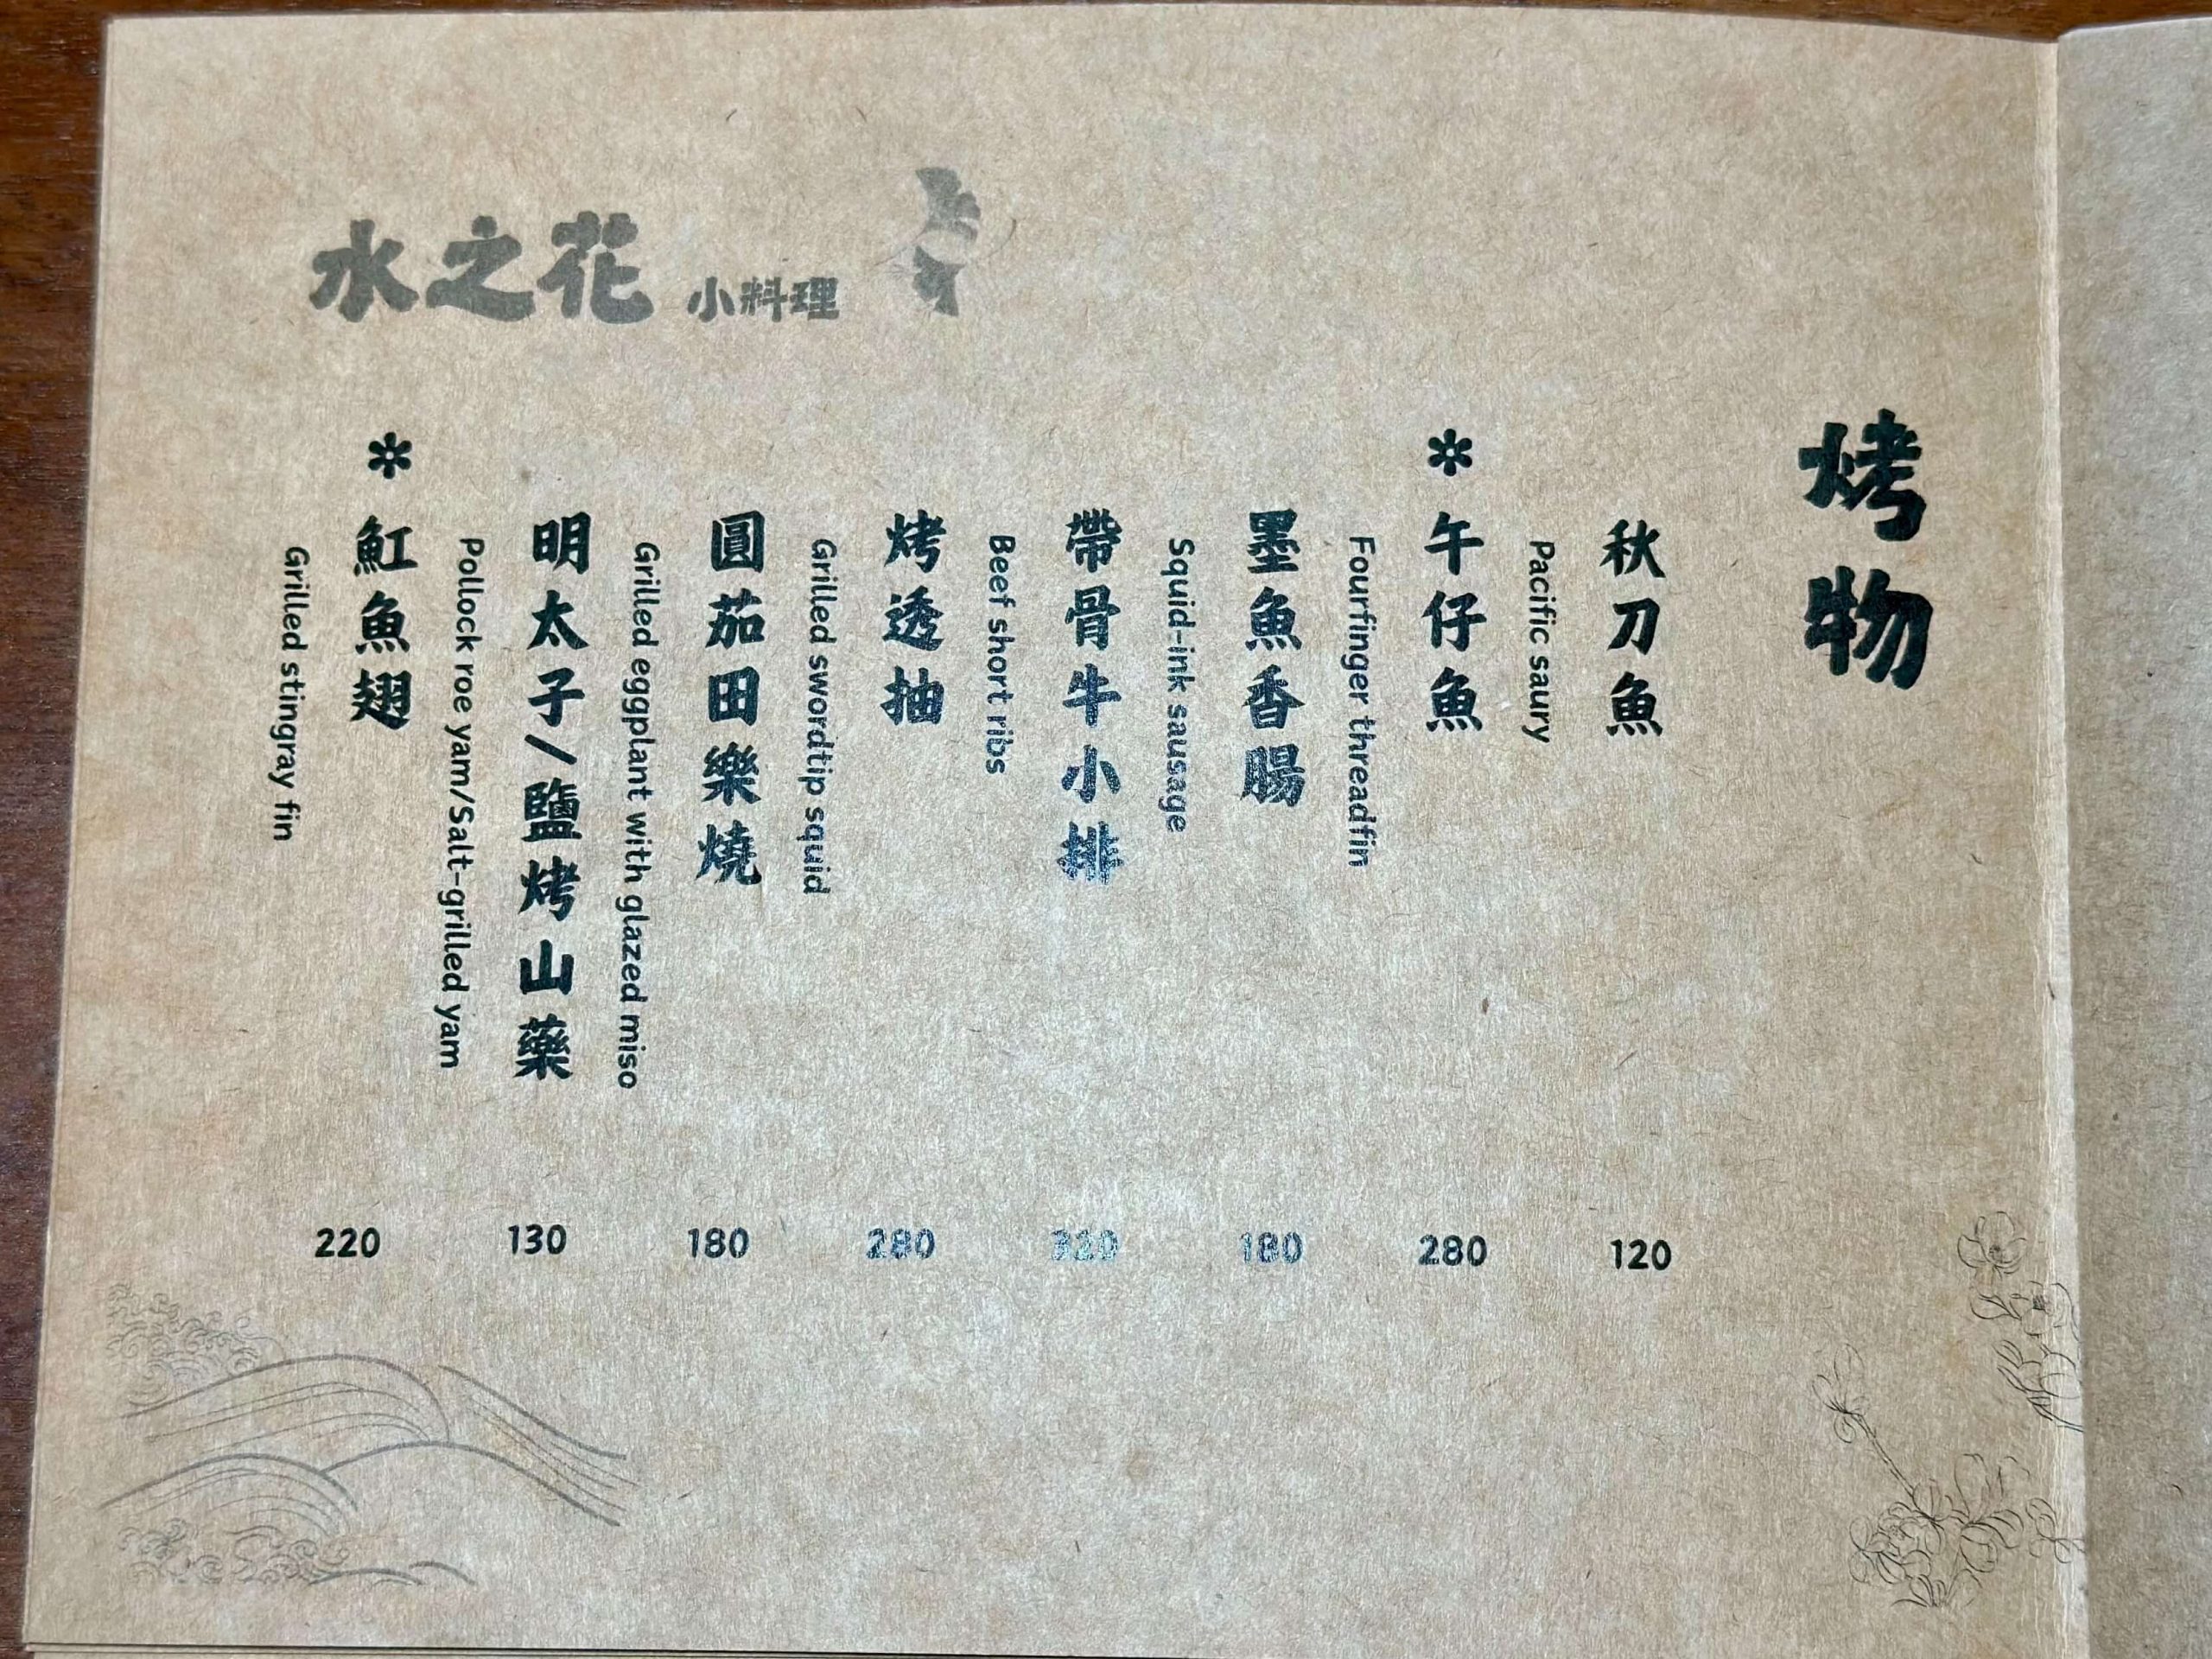 烤物
秋刀魚
Pacific saury
120
* 午仔魚
Fourfinger threadfin
280
墨魚香腸
Squid-ink sausage
180
帶骨牛小排
Beef short ribs
320
烤透抽
Grilled swordtip squid
280
圓茄田樂燒
Grilled eggplant with glazed miso
180
明太子/鹽烤山藥
Pollock roe yam/Salt-grilled yam
130
* 魟魚翅
Grilled stingray fin
220
水之花 小料理